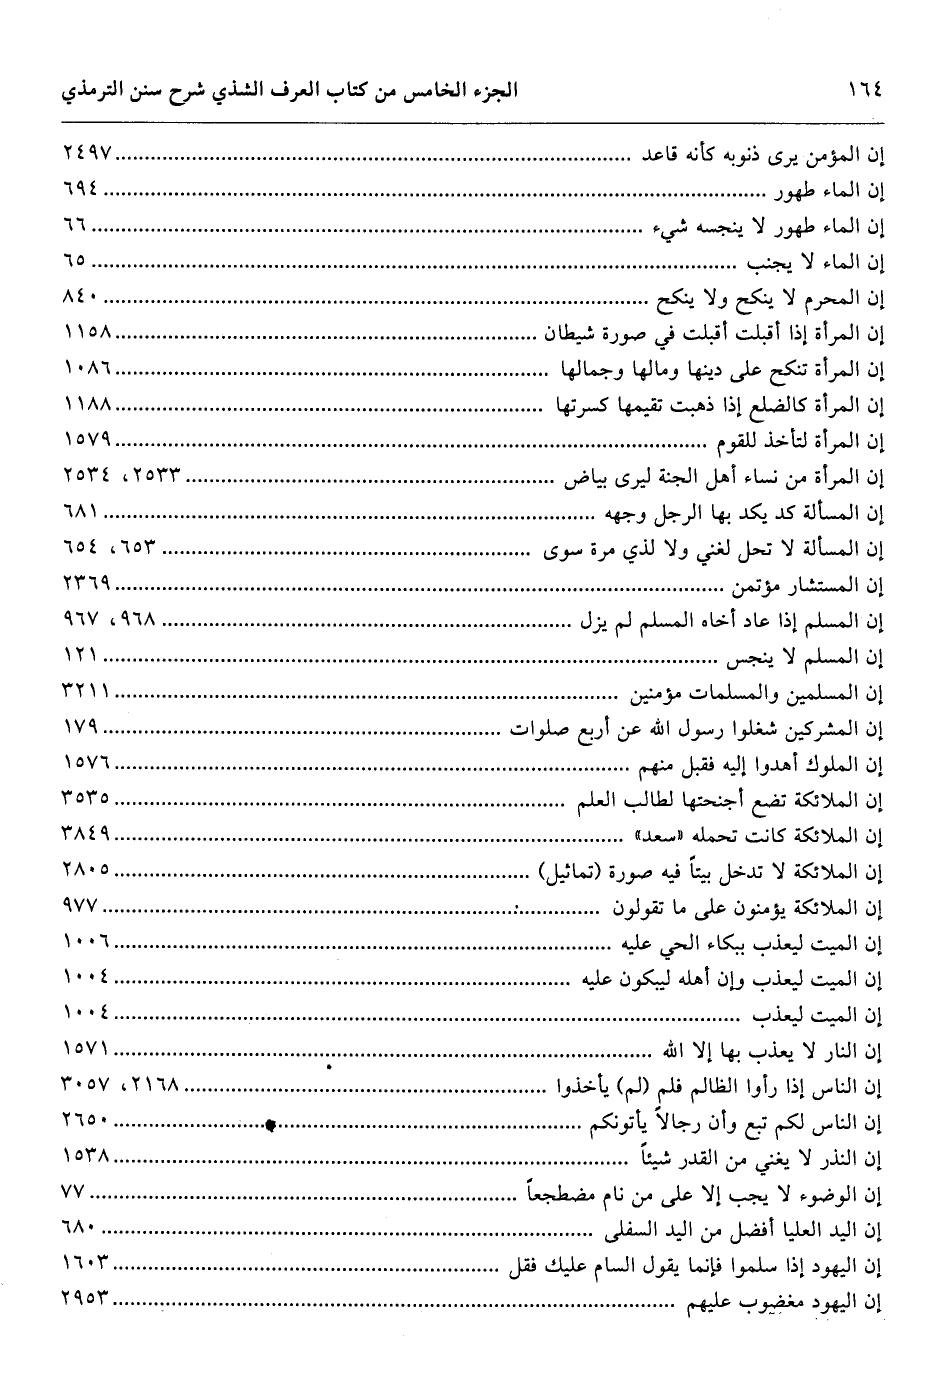 ١٦٤ الجزء الخامس من كتاب العرف الشذي شرح سنن الترمذي
إن المؤمن يرى ذنوبه كأنه قاعد ........ ٢٤٩٧
إن الماء طهور ........ ٦٩٤
إن الماء طهور لا ينجسه شيء ........ ٦٦
إن الماء لا يجنب ........ ٦٥
إن المحرم لا ينكح ولا ينكح ........ ٨٤٠
إن المرأة إذا أقبلت أقبلت في صورة شيطان ........ ١١٥٨
إن المرأة تنكح على دينها ومالها وجمالها ........ ١٠٨٦
إن المرأة كالضلع إذا ذهبت تقيمها كسرتها ........ ١١٨٨
إن المرأة لتأخذ للقوم ........ ١٥٧٩
إن المرأة من نساء أهل الجنة ليرى بياض ........ ٢٥٣٣، ٢٥٣٤
إن المسألة كد يكد بها الرجل وجهه ........ ٦٨١
إن المسألة لا تحل لغني ولا لذي مرة سوى ........ ٦٥٣، ٦٥٤
إن المستشار مؤتمن ........ ٢٣٦٩
إن المسلم إذا عاد أخاه المسلم لم يزل ........ ٩٦٨، ٩٦٧
إن المسلم لا ينجس ........ ١٢١
إن المسلمين والمسلمات مؤمنين ........ ٣٢١١
إن المشركين شغلوا رسول الله عن أربع صلوات ........ ١٧٩
إن الملوك أهدوا إليه فقبل منهم ........ ١٥٧٦
إن الملائكة تضع أجنحتها لطالب العلم ........ ٣٥٣٥
إن الملائكة كانت تحمله «سعد» ........ ٣٨٤٩
إن الملائكة لا تدخل بيتاً فيه صورة (تماثيل) ........ ٢٨٠٥
إن الملائكة يؤمنون على ما تقولون ........ ٩٧٧
إن الميت ليعذب ببكاء الحي عليه ........ ١٠٠٦
إن الميت ليعذب وإن أهله ليبكون عليه ........ ١٠٠٤
إن الميت ليعذب ........ ١٠٠٤
إن النار لا يعذب بها إلا الله ........ ١٥٧١
إن الناس إذا رأوا الظالم فلم (لم) يأخذوا ........ ٢١٦٨، ٣٠٥٧
إن الناس لكم تبع وأن رجالاً يأتونكم ........ ٢٦٥٠
إن النذر لا يغني من القدر شيئاً ........ ١٥٣٨
إن الوضوء لا يجب إلا على من نام مضطجعاً ........ ٧٧
إن اليد العليا أفضل من اليد السفلى ........ ٦٨٠
إن اليهود إذا سلموا فإنما يقول السام عليك فقل ........ ١٦٠٣
إن اليهود مغضوب عليهم ........ ٢٩٥٣